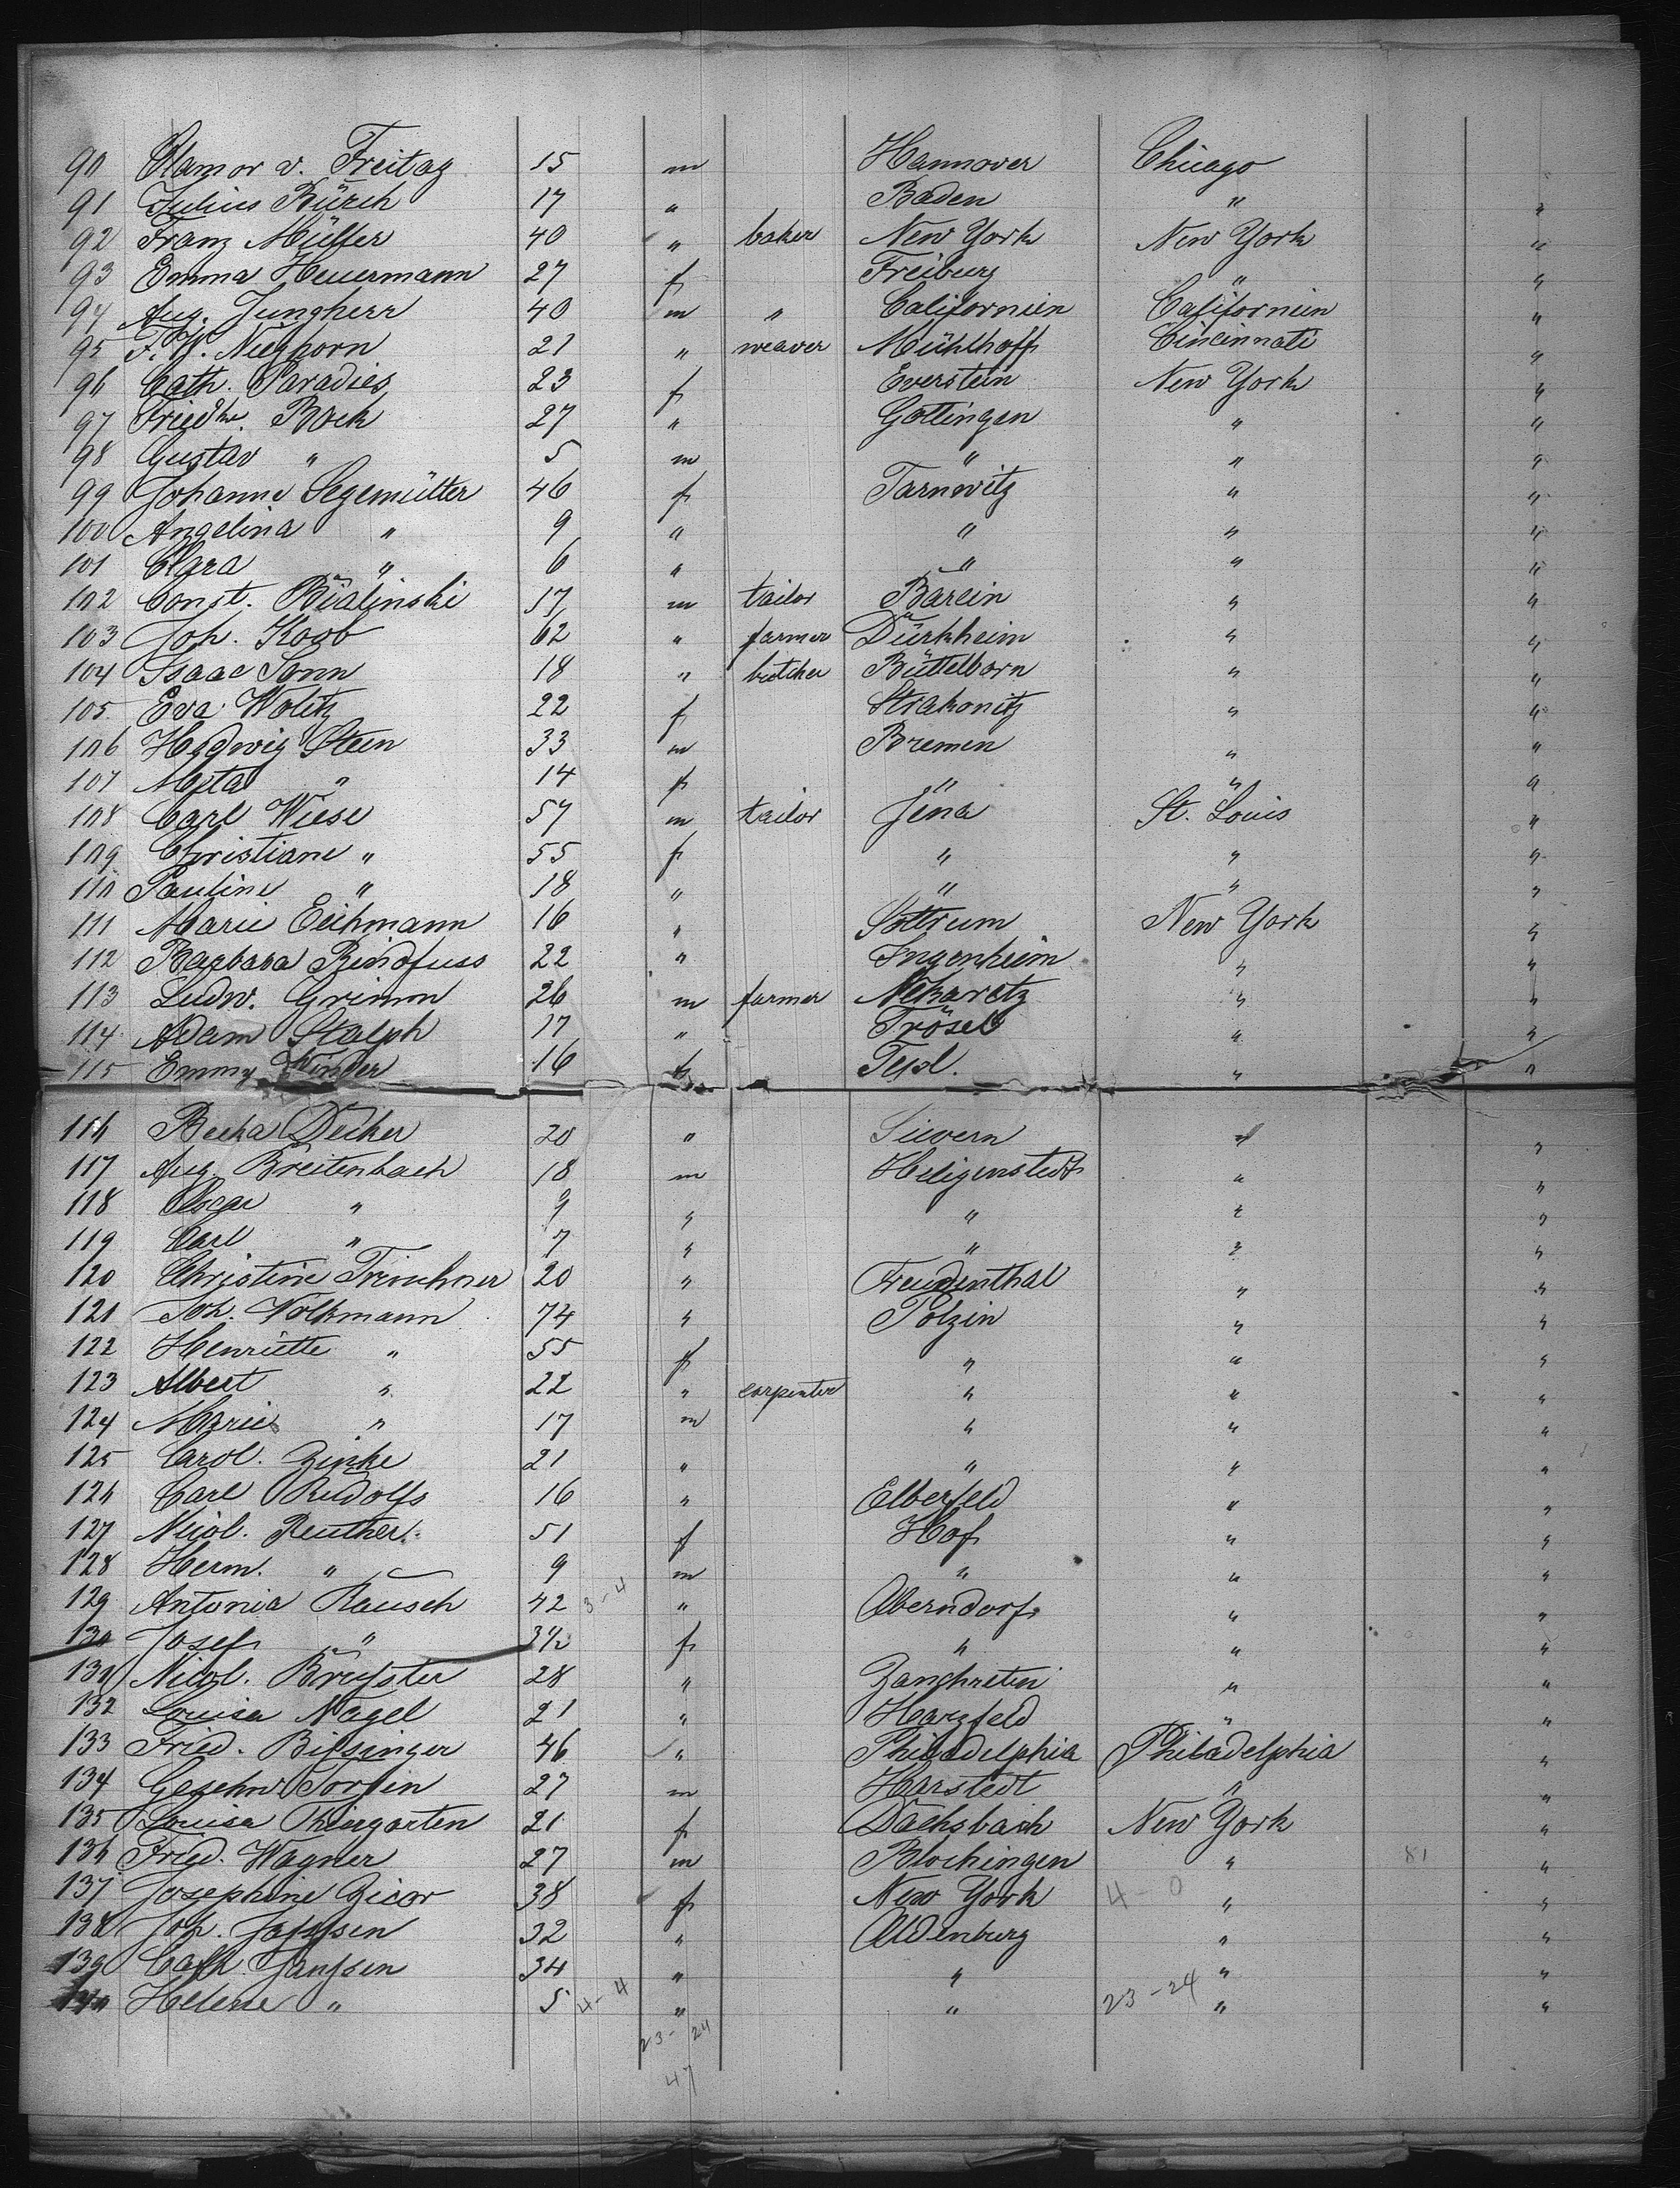 90 Clamor v. Freitag 15 m Hannover Chicago
91 Julius Bürch 17 " Baden " "
92 Franz Müller 40 " baker New York New York "
93 Emma Heuermann 27 f Freiburg " "
94 Aug. Jungherr 40 m " Californien Californien "
95 F. W. Nieghorn 21 " weaver Mühlhoff Cincinnati "
96 Cath. Paradies 23 f Everstein New York "
97 Friedke. Bock 27 " Gottingen " "
98 Gustav " 5 m " " "
99 Johanne Segemütter 46 f Tarnwitz " "
100 Angelina " 9 " " " "
101 Clara " 6 " " " "
102 Const. Bialinski 17 m tailor Barcin " "
103 Joh. Koob 62 " farmer Dürkheim " "
104 Isaac Sonn 18 " butcher Büttelborn " "
105 Eva Wolitz 22 f Strakonitz " "
106 Hedwig Stein 33 m Bremen " "
107 Meta " 14 f " " "
108 Carl Wiese 57 m tailor Jena St. Louis "
109 Christiane " 55 f " " "
110 Pauline " 18 " " " "
111 Marie Eichmann 16 " Sottrum New York "
112 Barbara Rindfuss 22 " Ingenheim " "
113 Ludw. Grimm 26 m farmer Nekaretz " "
114 Adam Stalph 17 " Trösel " "
115 Emmy Winder 16 f " "
116 Becka Decker 20 " Sievern " "
117 Aug. Breitenbach 18 m Heligenstedt " "
118 Oscar " 9 " " " "
119 Carl " 7 " " " "
120 Christine 20 " Freudenthal " "
121 Joh. Volkmann 74 " Polzin " "
122 Henriette " 55 f " " "
123 Albert " 22 " carpenter " " "
124 Marie " 17 m " " "
125 Carol. Zinke 21 " " " "
126 Carl Rudolfs 16 " Elberfeld " "
127 Nicol. Reuther 51 f Hof " "
128 Herm. " 9 m " " "
129 Antonia Rausch 42 3-4 " Oberndorf " "
130 Josef " 3½ f " " "
131 Nicol. 28 " " "
132 Louisa Nagel 21 " Harzfeld " "
133 Fried. Bilsinger 46 " Philadelphia Philadelphia "
134 Gesehne Torlin 27 m Harstedt " "
135 Louisa Thiergarten 21 f Dachsbach New York "
136 Fried. Wagner 27 m Blochingen " 81 "
137 Josephine Zicor 38 f New York 4-0 " "
138 Joh. Janssen 32 " Oldenburg " "
139 Cath. Janssen 34 " " " "
140 Helene " 5 4-4 " " 23-24 " "
23-24
47